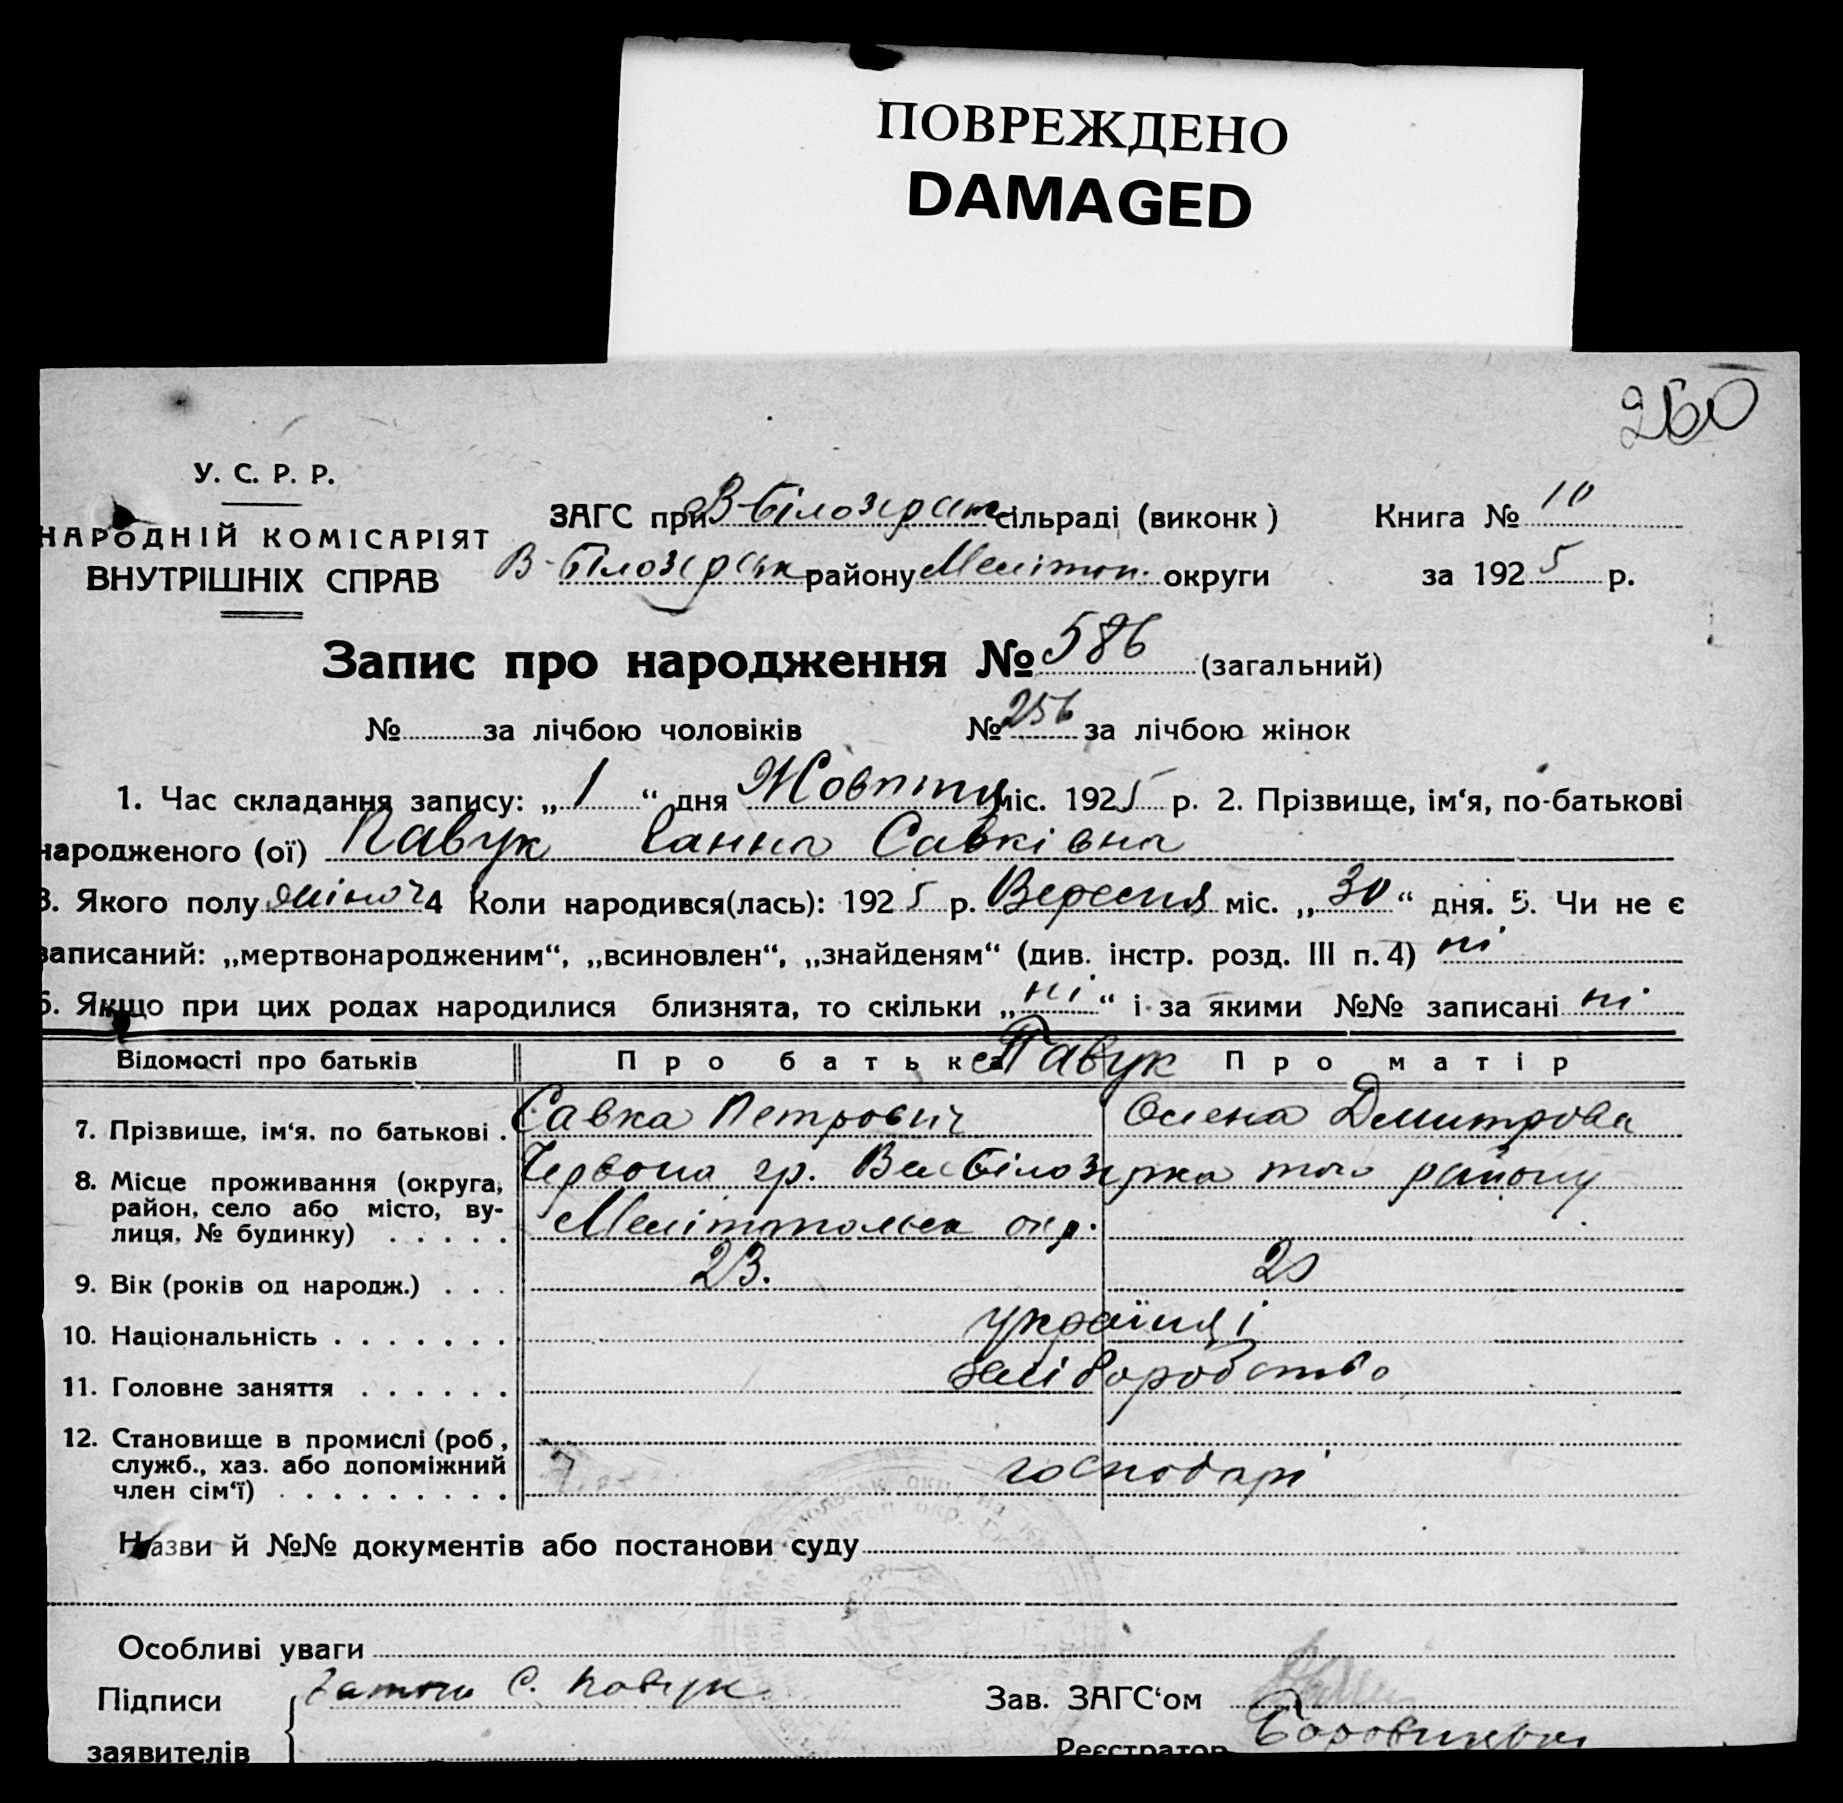 ПОВРЕЖДЕНО
DAMAGED
260
У. С. Р. Р.
НАРОДНІЙ КОМІСАРІЯТ
ВНУТРІШНІХ СПРАВ
ЗАГС при В-Білозерск сільраді (виконк)
В-Білозерськ району Мелітоп. округи
Книга № 10
за 1925 р.
Запис про народження № 586 (загальний)
№ за лічбою чоловіків № 256 за лічбою жінок
1. Час складання запису: „1“ дня Жовтня міс. 1925 р. 2. Прізвище, ім‘я, по-батькові
народженого (ої) Павук Ганна Савківна
3. Якого полу жіноч 4 Коли народився(лась): 1925 р. Вересня міс. „30“ дня. 5. Чи не є
записаний: „мертвонародженим“, „всиновлен“, „знайденям“ (див. інстр. розд. III п. 4) ні
6. Якщо при цих родах народилися близнята, то скільки „ні“ і за якими №№ записані ні
Відомості про батьків Про батька Павук Про матір
7. Прізвище, ім‘я, по батькові . Савка Петрович Олена Дмитрова
8. Місце проживання (округа, район, село або місто, вулиця, № будинку) . . . . . Червона гр. Вел Білозірка того району
Мелітопольск окр.
9. Вік (років од народж.) . . . 23. 20
10. Національність . . . . . . . українці
11. Головне заняття . . . . . . хліборобство
12. Становище в промислі (роб,
служб., хаз. або допоміжний
член сім‘ї) . . . . . . . . . господарі
Назви й №№ документів або постанови суду
Особливі уваги
Підписи С. Павук
Зав. ЗАГС‘ом
заявителів
Реєстратор